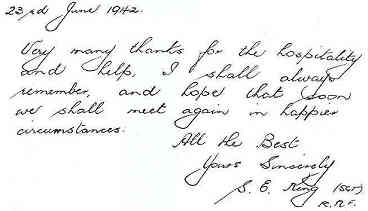 23rd June 1942.
Very many thanks for the hospitality
and help, I shall always
remember, and hope that soon
we shall meet again in happier
circumstances.
All the Best
Yours Sincerely
S. E. King (SGT)
R.A.F.